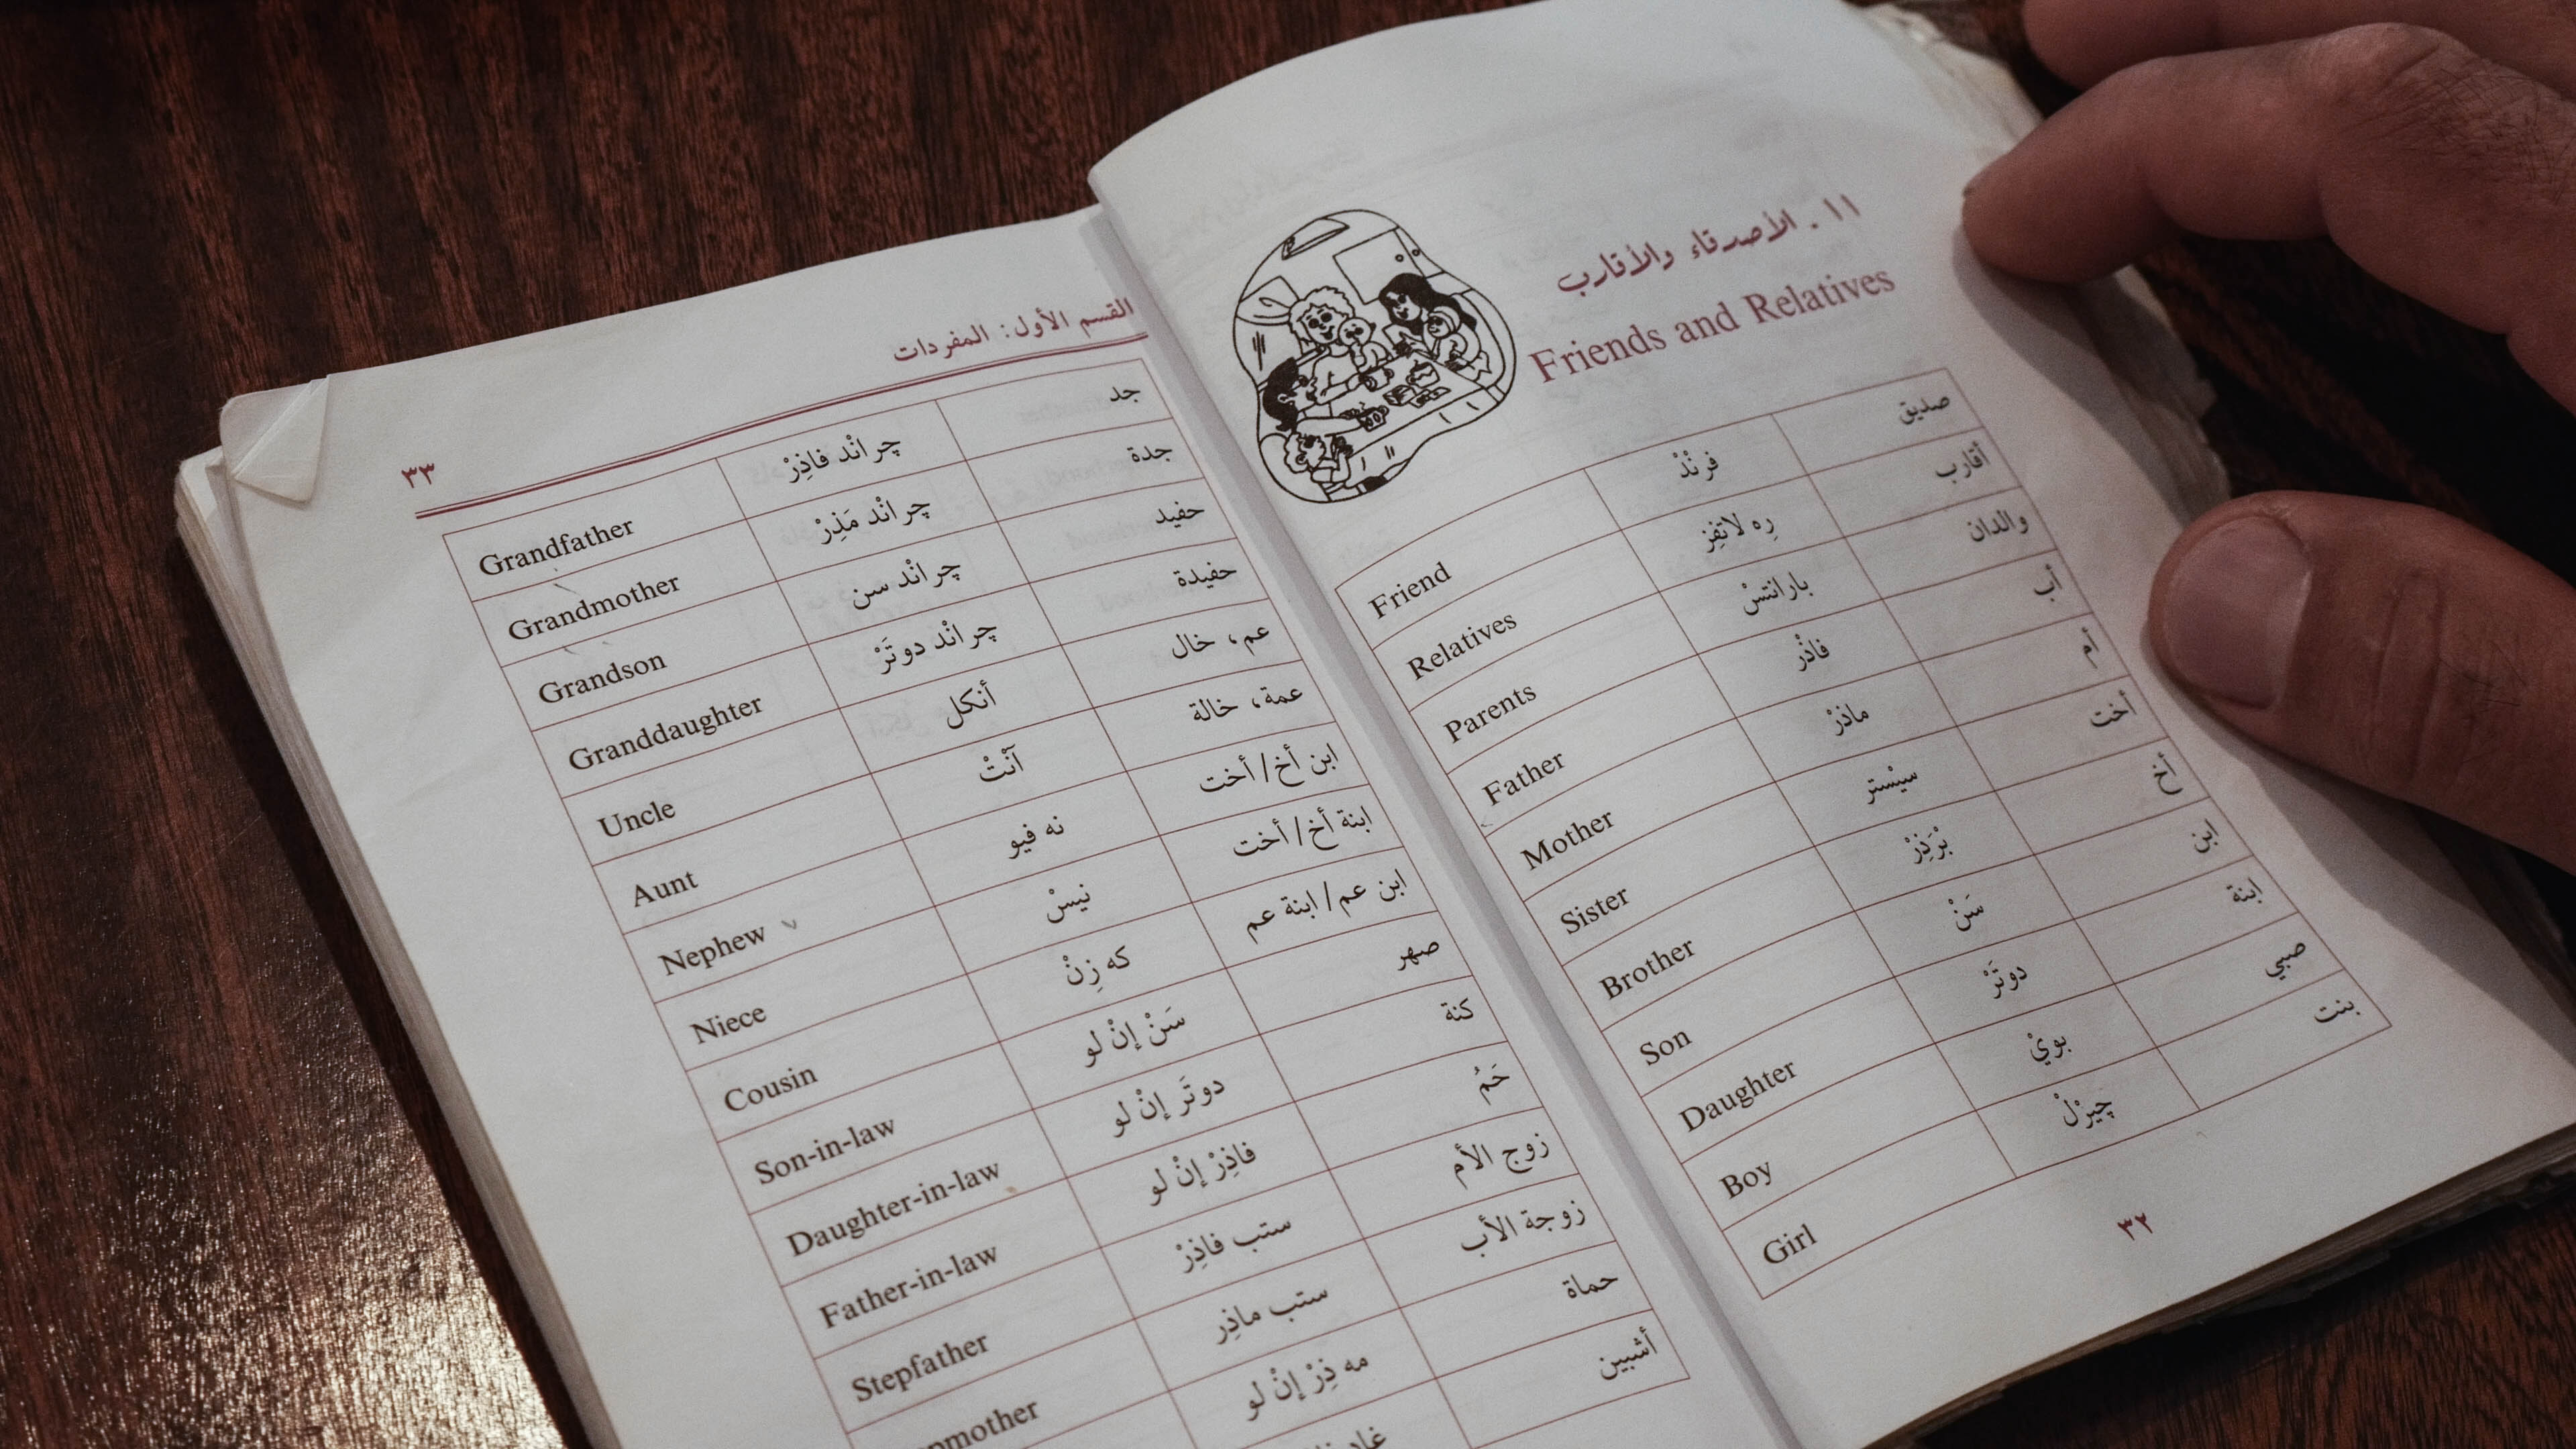 ١١. الأصدقاء والأقارب
Friends and Relatives
صديق فرنْدْ Friend
أقارب رِه لاتفِز Relatives
والدان بارانتسْ Parents
أب فاذْر Father
أم ماذرْ Mother
أخت سيْستر Sister
أخ بْرَذِرْ Brother
ابن سَنْ Son
ابنة دوتَرْ Daughter
صبي بويْ Boy
بنت چيرْلْ Girl
٣٢
القسم الأول: المفردات ٣٣
جد چرانْد فاذِرْ Grandfather
جدة چرانْد مَذِرْ Grandmother
حفيد چرانْد سن Grandson
حفيدة چرانْد دوتَرْ Granddaughter
عم، خال أنكل Uncle
عمة، خالة آنْتْ Aunt
ابن أخ/أخت نه فيو Nephew
ابنة أخ/أخت نيسْ Niece
ابن عم/ابنة عم كه زِنْ Cousin
صهر سَنْ إنْ لو Son-in-law
كنة دوتَر إنْ لو Daughter-in-law
حَمُ فاذِرْ إنْ لو Father-in-law
زوج الأم ستب فاذِرْ Stepfather
زوجة الأب ستب ماذِر
حماة مه ذِرْ إنْ لو
أشبين